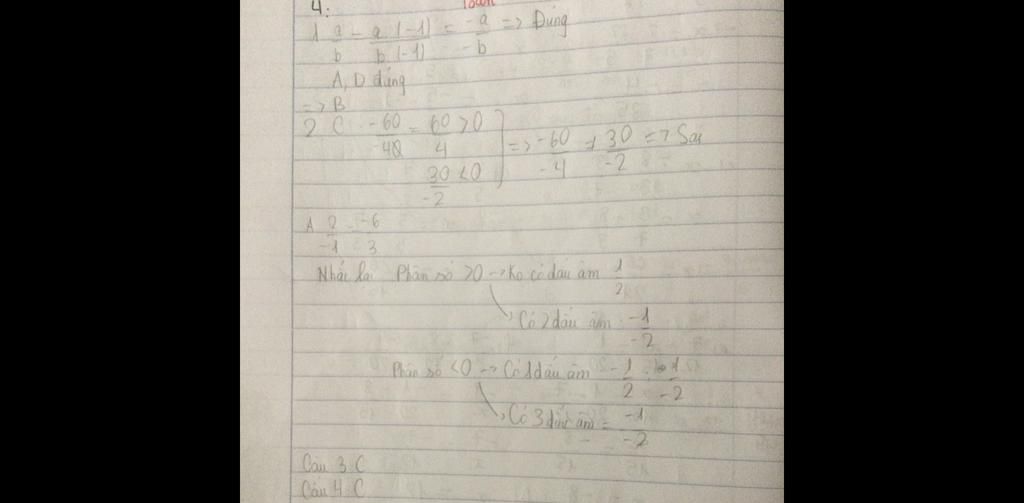 Toán
4:
1 a/b = a.(-1)/b.(-1) = -a/-b => Đúng
A, D đúng
=> B
2 C -60/-4 = 60/4 > 0
30/-2 < 0
=> -60/-4 ≠ 30/-2 => Sai
A 2/-1 = -6/3
Nhắc lại Phân số >0 -> Ko có dấu âm 1/2
-> Có 2 dấu âm -1/-2
Phân số <0 -> Có 1 dấu âm -1/2 ; 1/-2
-> Có 3 dấu âm = - -1/-2
Câu 3 C
Câu 4 C